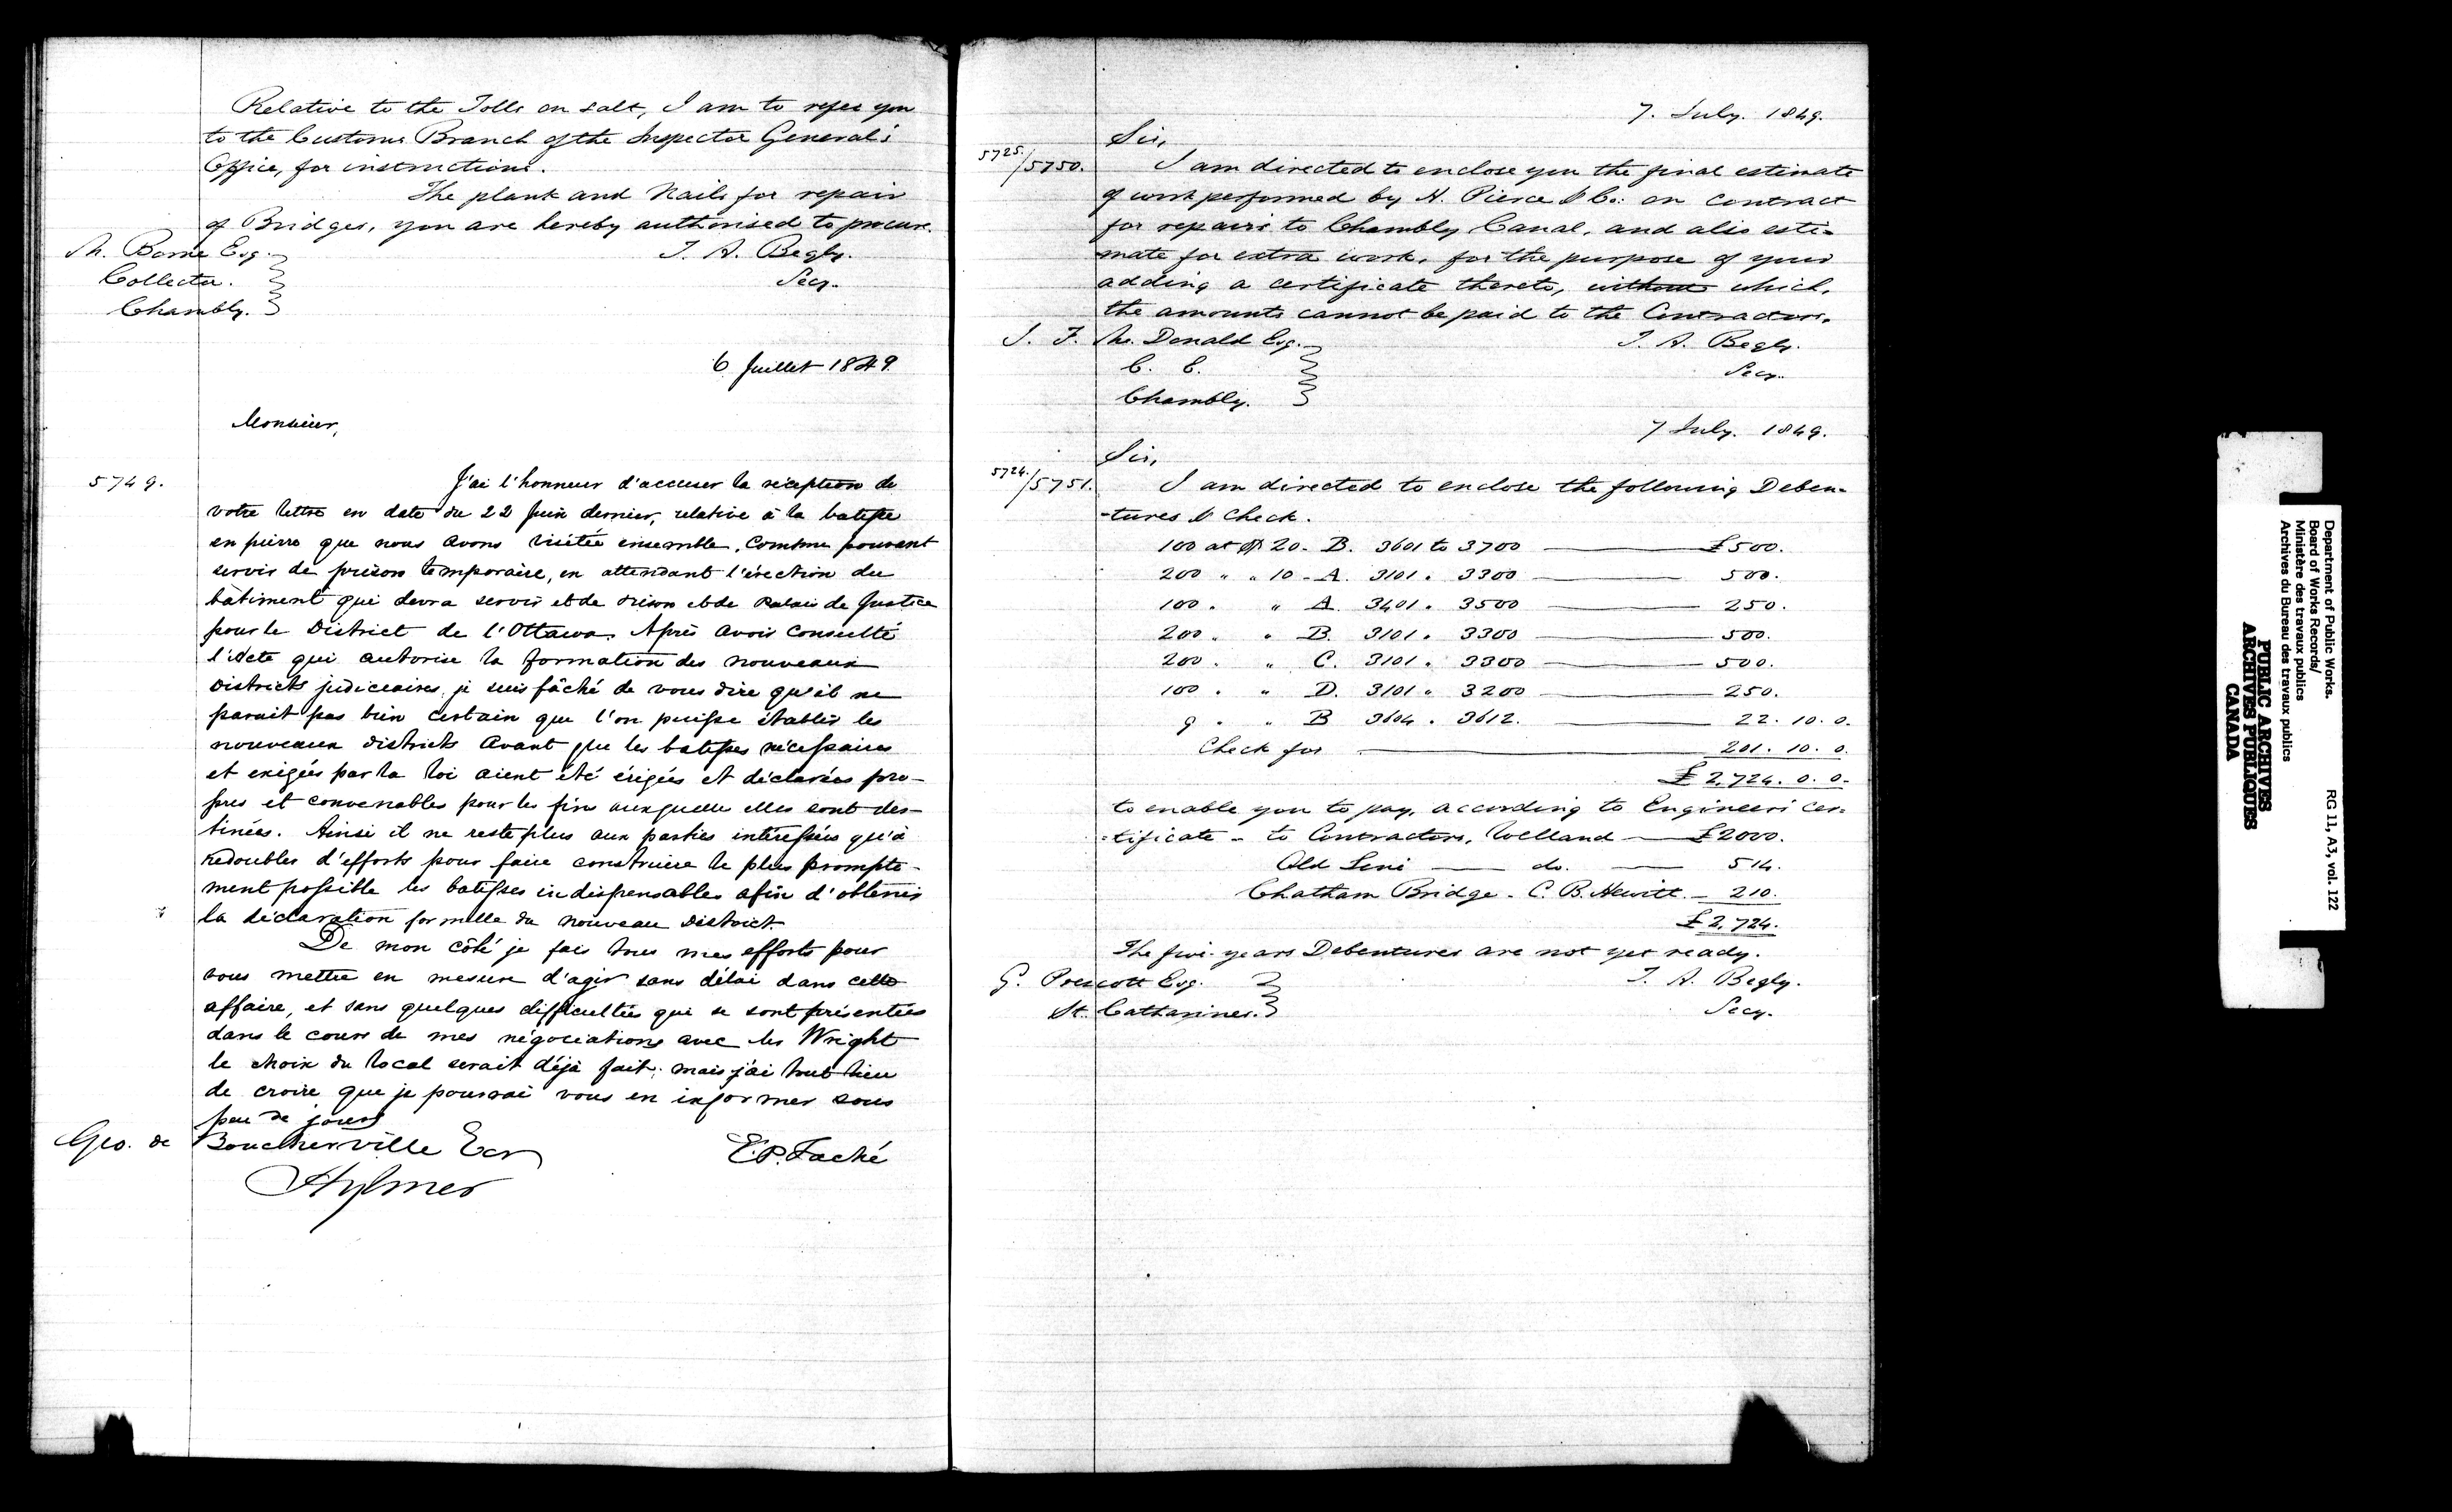 Relative to the Tolls on salt, I am to refer you
to the Customs Branch of the Inspector General's
Office, for instructions.
The plank and Nails for repair
of Bridges, you are hereby authorised to procure.
T. A. Begly.
Secy.
Esq.
Collector.
Chambly.
6 Juillet 1849
Monsieur,
5749.
J'ai l'honneur d'accuser la réception de
votre lettre en date du 22 Juin dernier, relative à la batisse
en pierre que nous avons visitée ensemble, comme pouvant
servir de prison temporaire, en attendant l'érection du
bâtiment qui devra servir et de prison et de Palais de Justice
pour le District de l'Ottawa. Après avoir consulté
l'Acte qui autorise la formation des nouveaux
Districts judiciaires, je suis fâché de vous dire qu'il ne
parait pas bien certain que l'on puisse établir les
nouveaux districts avant que les batisses nécessaires
et exigées par la loi aient été érigées et déclarées pro-
pres et convenables pour les fins auxquelles elles sont des-
tinées. Ainsi il ne reste plus aux parties intéressées qu'à
redoubler d'efforts pour faire construire le plus prompte-
ment possible les batisses indispensables afin d'obtenir
la déclaration formelle du nouveau District.
De mon côté je fais tous mes efforts pour
vous mettre en mesure d'agir sans délai dans cette
affaire, et sans quelques difficultées qui se sont présentées
dans le cours de mes négociations avec les Wright
le choix du local serait déjà fait; mais j'ai tout lieu
de croire que je pourrai vous en informer sous
peu de jours
Geo. de Boucherville Ecr
E. P. Taché
Aylmer
7. July. 1849.
Sir,
5725./5750.
I am directed to enclose you the final estimate
of work performed by H. Pierce & Co: on contract
for repairs to Chambly Canal, and also esti-
mate for extra work, for the purpose of your
adding a certificate thereto, without which,
the amounts cannot be paid to the Contractors.
J. F. Mc. Donald Esq.
T. A. Begly.
C. E.
Secy.
Chambly.
7 July. 1849.
Sir,
5724./5751.
I am directed to enclose the following Deben-
-tures & Check.
100 at $ 20 - B. 3601 to 3700 — £500.
200 " " 10 - A. 3101 " 3300 — 500.
100 . " A. 3401 . 3500 — 250.
200 . " B. 3101 . 3300 — 500.
200 . " C. 3101 . 3300 — 500.
100 . " D. 3101 " 3200 — 250.
9 . " B 3604 . 3612. — 22. 10. 0.
Check for — 201. 10. 0.
£ 2,724. 0. 0.
to enable you to pay, according to Engineers' cer-
-tificate - to Contractors, Welland — £2000.
Old Line — do. — 514.
Chatham Bridge - C. B. Hewitt — 210.
£ 2,724.
The five years Debentures are not yet ready.
G. Prescott Esq.
T. A. Begly.
St. Catharines.
Secy.
Department of Public Works.
Board of Works Records/
Ministère des travaux publics
Archives du Bureau des travaux publics
RG 11, A3, vol. 122
PUBLIC ARCHIVES
ARCHIVES PUBLIQUES
CANADA